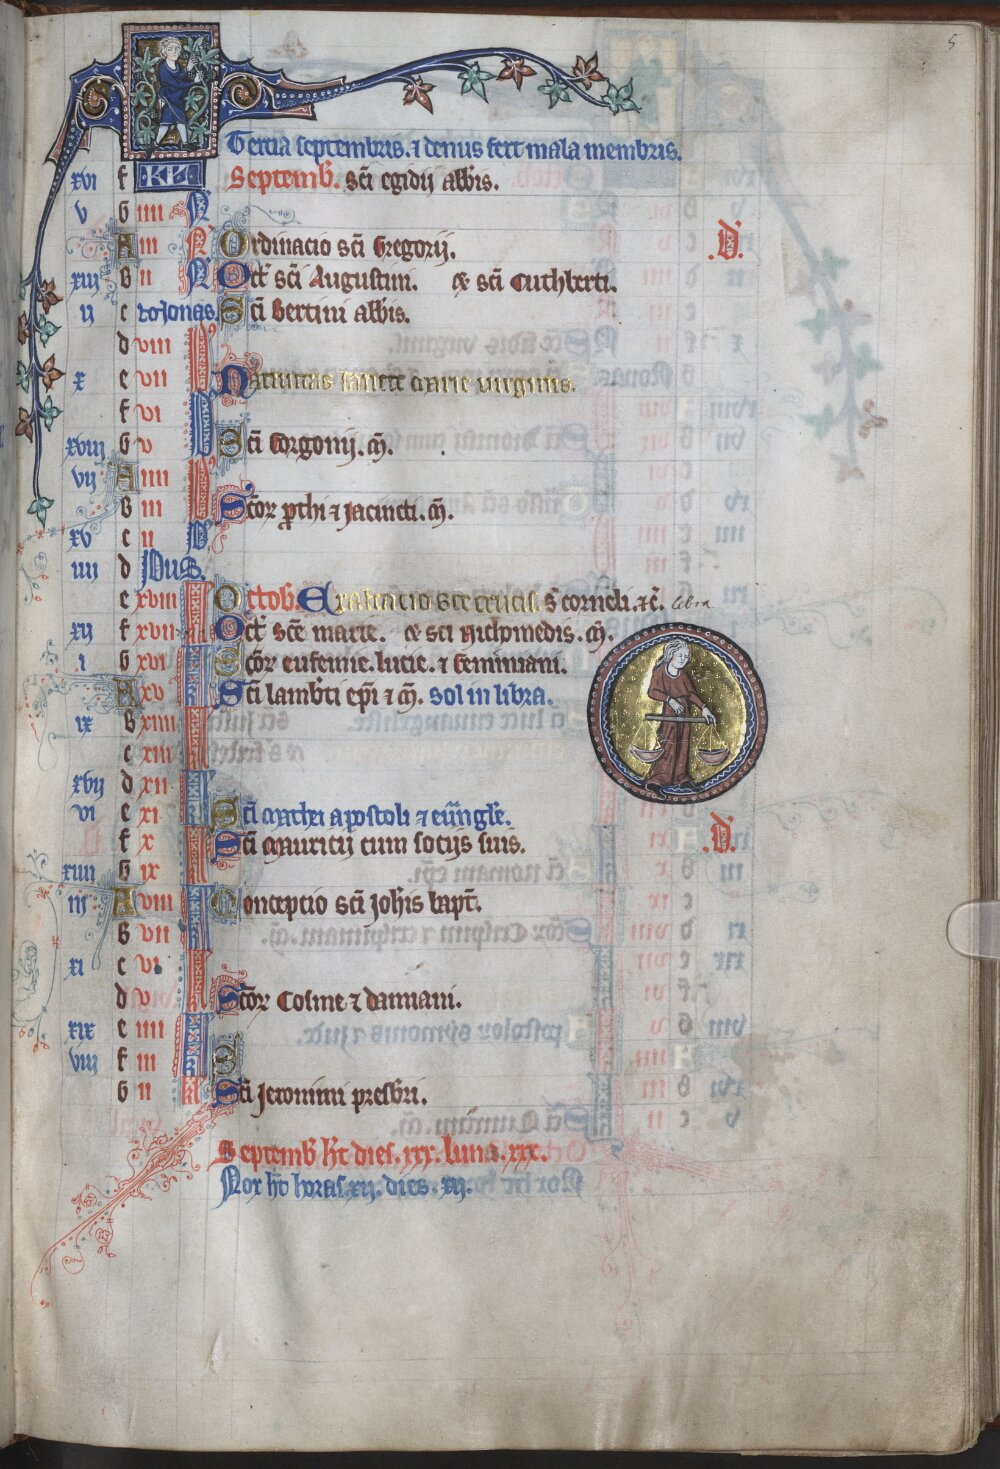 5
Tercia septembris. ⁊ denus fert mala membris.
xvi f KL Septemb̄. sc̄i egidij abb̄is.
v g iiii N
A iii N Ordinacio sc̄i Gregorij. .D̄.
xiii b ii N Oct̄ sc̄i Augustini. & sc̄i Cuthberti.
ii c Nonas. Sc̄i Bertini abb̄is.
d viii
x e vii Natiuitas sancte marie uirginis.
f vi
xviii g v Sc̄i Gorgonij. m̄.
vii A iiii
b iii Sc̄oꝝ ꝓthi ⁊ Jacincti. m̄.
xv c ii
iiii d Idus.
e xviii Octob̄. Exaltacio sc̄e crucis. s̄ corneli. ⁊c̄. libra
xii f xvii Oct̄ sc̄e marie. & sc̄i nichomedis. m̄.
i g xvi Sc̄oꝝ eufemie. lucie. ⁊ Geminiani.
A xv Sc̄i lamb̄ti ep̄i ⁊ m̄. sol in libra.
ix b xiiii
c xiii
xvii d xii
vi e xi Sc̄i Mathei apostoli ⁊ euu̅ngl̄e.
f x Sc̄i Mauricij cum socijs suis. .D̄.
xiiii g ix
iii A viii Conceptio sc̄i Joh̄is bapt̄.
b vii
xi c vi
d v Sc̄oꝝ Cosme ⁊ damiani.
xix e iiii
viii f iii
g ii Sc̄i Jeronimi presb̄ri.
Septemb̄ h̄t dies. xxx. luna. xxx.
Nox h̄t horas xii. dies. xii.